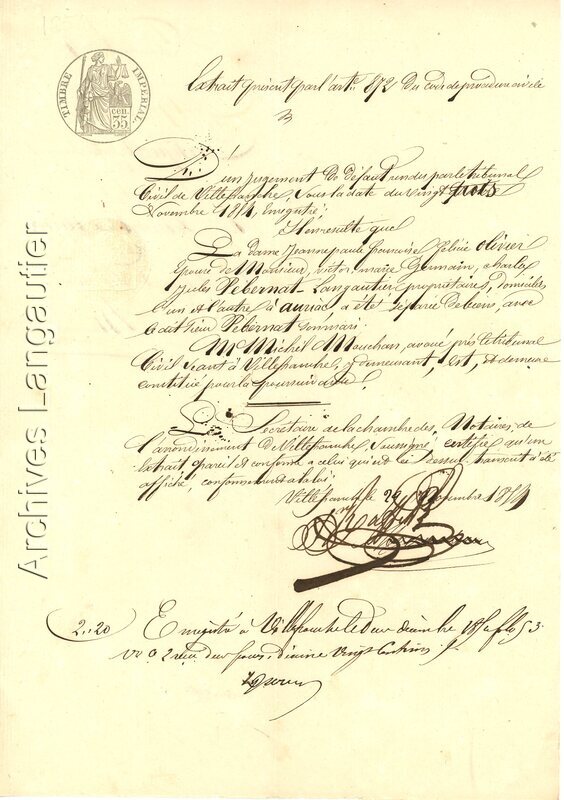 TIMBRE IMPERIAL
35 cen.
Extrait prescrit par l'art. 872 du code de procédure civile
D'un jugement de défaut rendu par le tribunal
Civil de Villefranche, sous la date du vingt trois
Novembre Enregistré;
Il résulte que
La dame Jeanne paule françoise félicie olivier
épouse de Monsieur victor marie Germain charles
Jules Pebernat Langautier propriétaires, Domiciliés
l'un et l'autre à auriac a été séparée de biens, avec
le dit Sieur Pebernat son mari.
Me Michel Mouchan, avoué près le tribunal
Civil séant à Villefranche, y demeurant, est, et demeure
constitué pour la poursuivante.
Le Secrétaire de la chambre des Notaires de
l'arrondissement de Villefranche, Soussigné, certifie qu'un
Extrait pareil et conforme à celui qui est ci dessus transcrit à été
affiché, conformément à la loi.
Villefranche le
2..20 Enregistré à Villefranche le deux décembre
reçu deux francs, décime vingt centimes
Archives Langautier